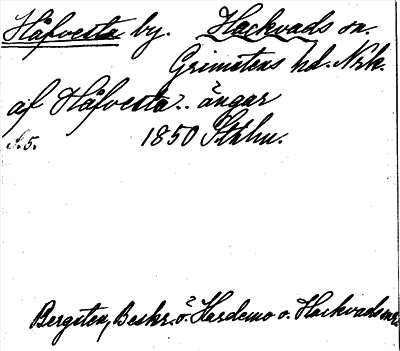 Håfvesta by. Hackvads sn.
Grimstens hd. Nrk.
af Håfvesta.. ängar
s.5. 1850 Ståhn.
Bergsten, Beskr. ö. Hardemo o. Hackvads snr.